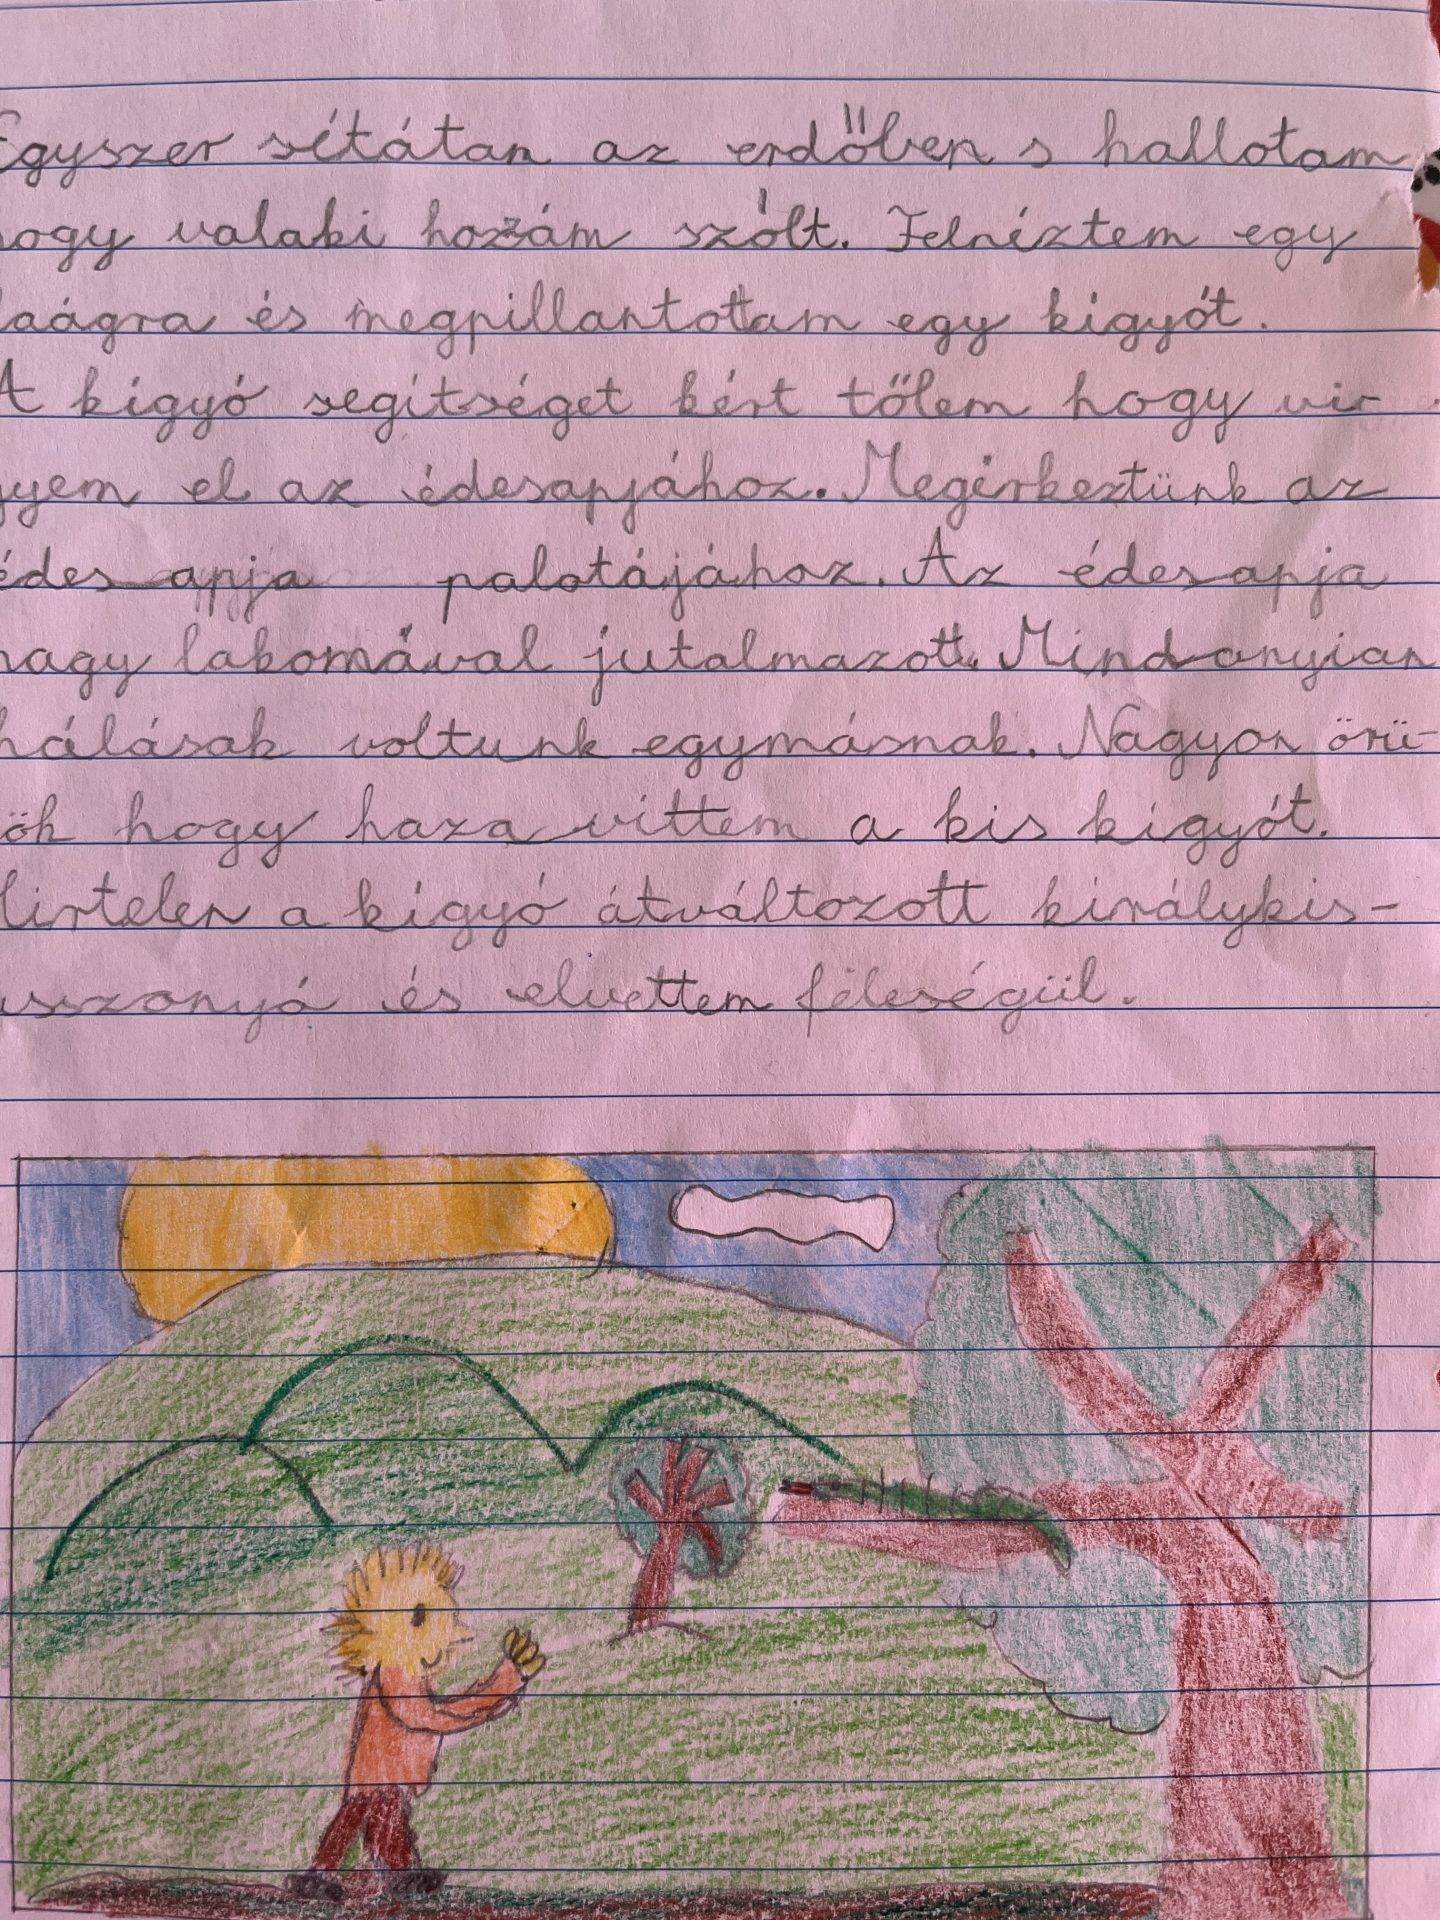 Egyszer sétátan az erdőben s hallotam
hogy valaki hozzám szólt. Felnéztem egy
faágra és megpillantottam egy kigyót.
A kigyó segítséget kért tőlem hogy vi-
gyem el az édesapjához. Megérkeztünk az
édes apja palotájához. Az édesapja
nagy lakomával jutalmazott. Mindanyian
hálásak voltunk egymásnak. Nagyon örü-
lök hogy haza vittem a kis kigyót.
Hirtelen a kigyó átváltozott királykis-
asszonyá és elvettem féleségül.